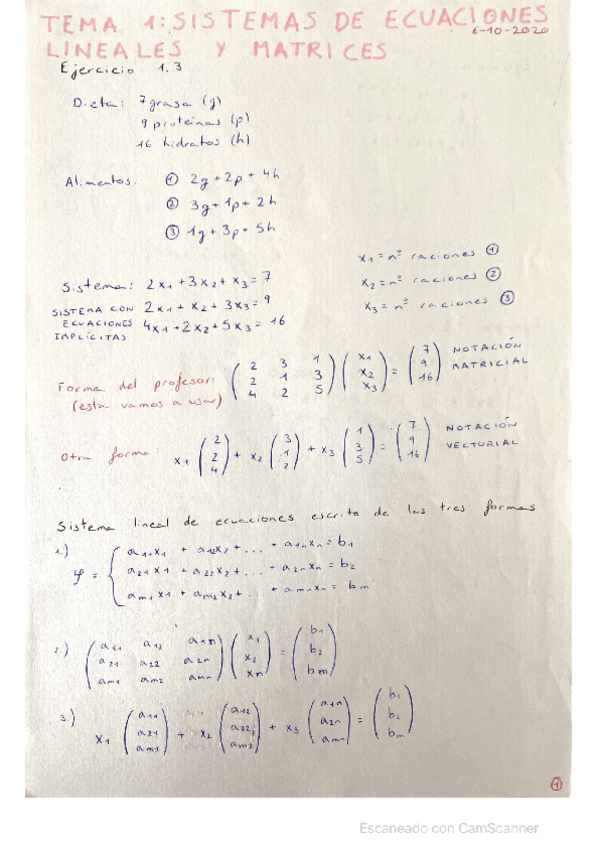 TEMA 1: SISTEMAS DE ECUACIONES
6-10-2020
LINEALES Y MATRICES
Ejercicio 1.3
Dieta: 7 grasa (g)
9 proteínas (p)
16 hidratos (h)
Alimentos: ① 2g + 2p + 4h
② 3g + 1p + 2h
③ 1g + 3p + 5h
x1 = nº raciones ①
x2 = nº raciones ②
x3 = nº raciones ③
Sistema: 2x1 + 3x2 + x3 = 7
SISTEMA CON 2x1 + x2 + 3x3 = 9
ECUACIONES 4x1 + 2x2 + 5x3 = 16
IMPLÍCITAS
Forma del profesor: (2 3 1; 2 1 3; 4 2 5) (x1; x2; x3) = (7; 9; 16) NOTACIÓN MATRICIAL
(esta vamos a usar)
Otra forma: x1 (2; 2; 4) + x2 (3; 1; 2) + x3 (1; 3; 5) = (7; 9; 16) NOTACIÓN VECTORIAL
Sistema lineal de ecuaciones escrito de las tres formas
1.) a11x1 + a12x2 + ... + a1nxn = b1
φ = { a21x1 + a22x2 + ... + a2nxn = b2
am1x1 + am2x2 + ... + amnxn = bm
2.) (a11 a12 a1n; a21 a22 a2n; am1 am2 amn) (x1; x2; xn) = (b1; b2; bm)
3.) x1 (a11; a21; am1) + x2 (a12; a22; am2) + x3 (a1n; a2n; amn) = (b1; b2; bm)
①
Escaneado con CamScanner